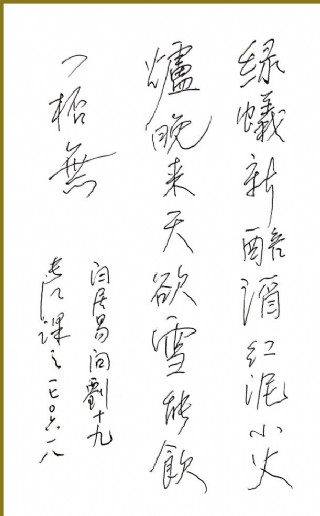 绿蟻新醅酒红泥小火
爐晚来天欲雪能飲
一桮無
白居易问劉十九
课之